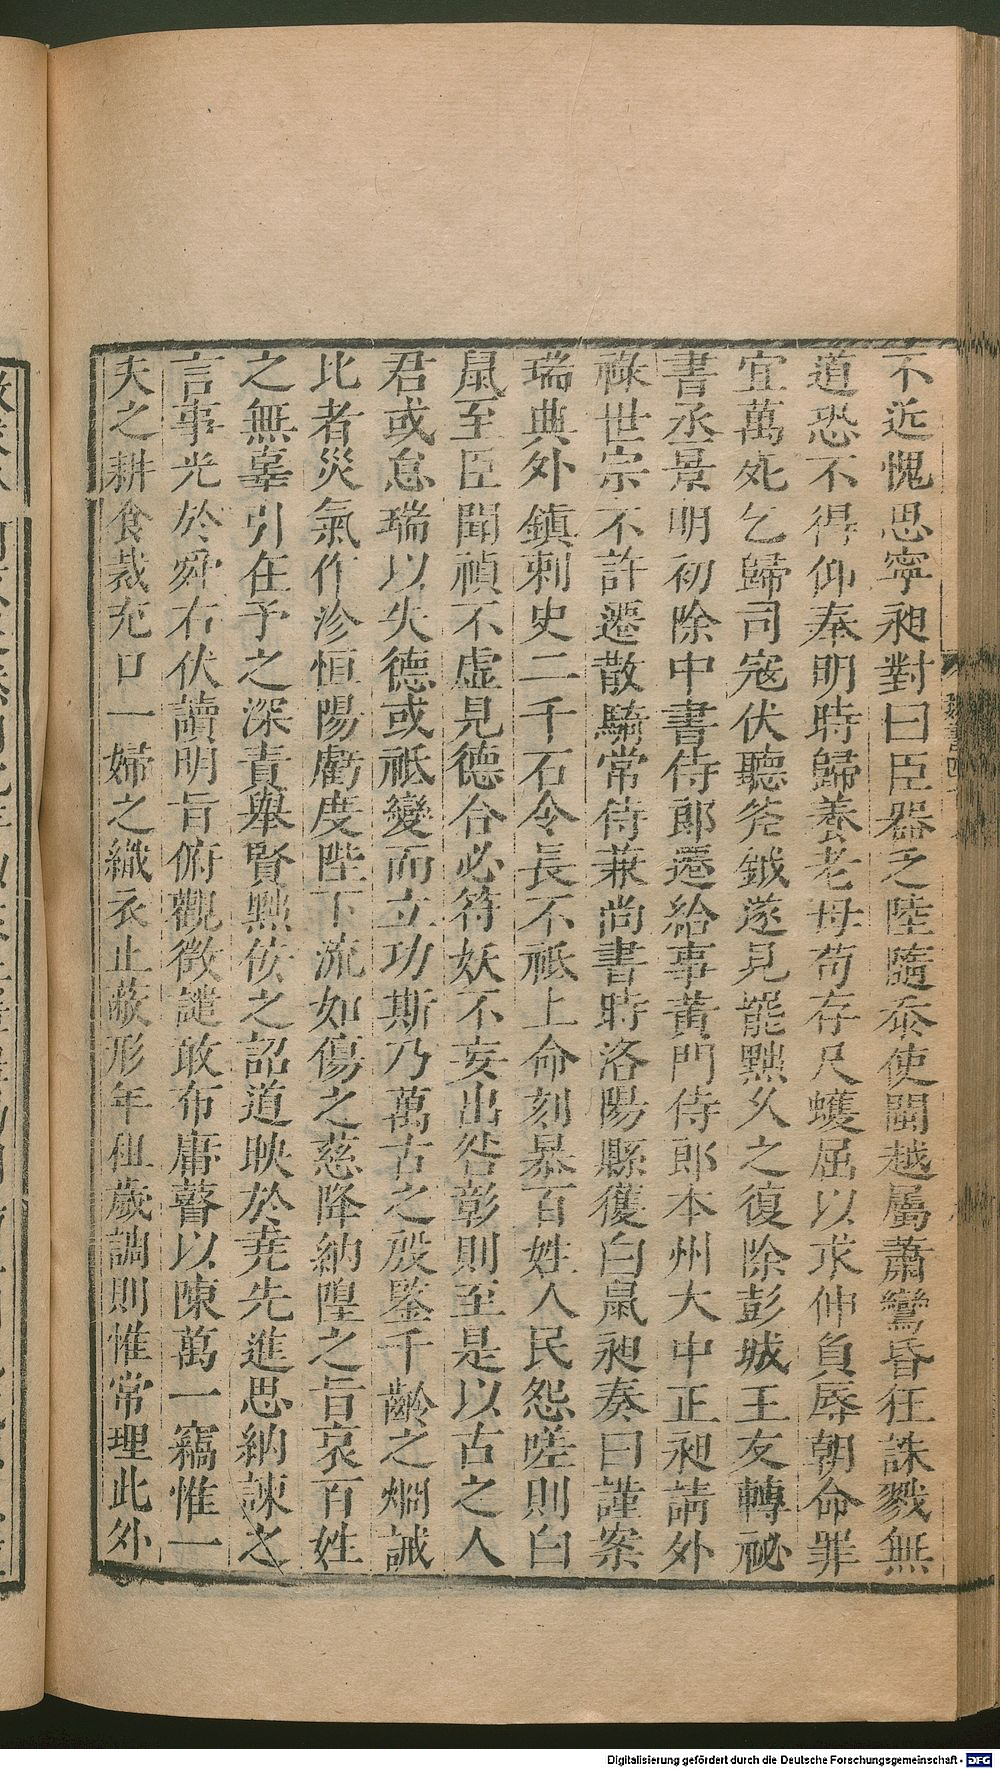 不近愧思寧昶對曰臣器乏陸隨忝使閩越屬蕭鸞昏狂誅戮無
道恐不得仰奉明時歸養老母苟存尺蠖屈以求伸負辱朝命罪
宜萬死乞歸司寇伏聽斧鉞遂見罷黜久之復除彭城王友轉祕
書丞景明初除中書侍郎遷給事黃門侍郎本州大中正昶請外
祿世宗不許遷散騎常侍兼尚書時洛陽縣獲白鼠昶奏曰謹案
瑞典外鎮刺史二千石令長不祗上命刻暴百姓人民怨嗟則白
鼠至臣聞禎不虛見德合必符妖不妄出咎彰則至是以古之人
君或怠瑞以失德或祗變而立功斯乃萬古之殷鑒千齡之炯誡
比者災氣作沴恒陽虧度陛下流如傷之慈降納隍之旨哀百姓
之無辜引在予之深責舉賢黜佞之詔道映於堯先進思納諫之
言事光於舜右伏讀明旨俯觀徵譴敢布庸瞽以陳萬一竊惟一
夫之耕食裁充口一婦之織衣止蔽形年租歲調則惟常理此外
魏書四十
Digitalisierung gefördert durch die Deutsche Forschungsgemeinschaft - DFG